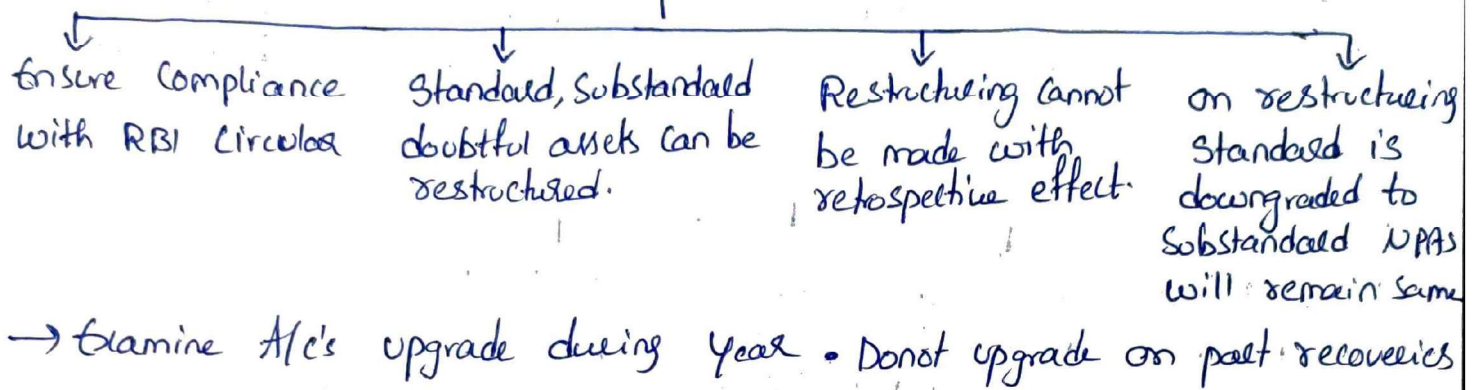 Ensure Compliance
with RBI Circular
Standard, Substandard
doubtful assets can be
restructured.
Restructuring cannot
be made with
retrospective effect.
on restructuring
Standard is
downgraded to
Substandard NPAs
will remain same
→ Examine A/c's upgrade during year • Donot upgrade on part recoveries